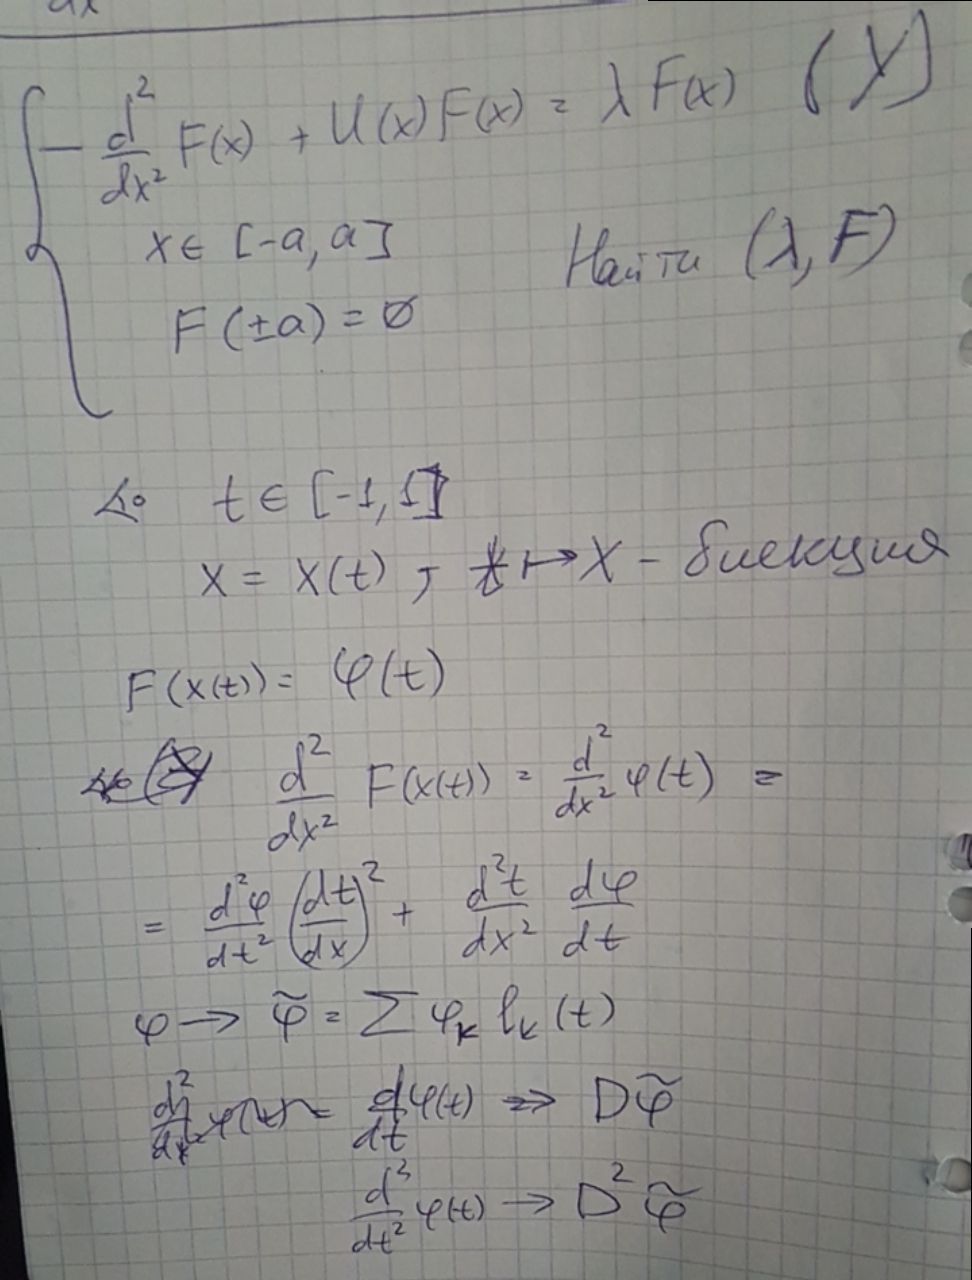 dx
- d²/dx² F(x) + U(x)F(x) = λF(x) (Y)
x ∈ [-a, a]
Найти (λ, F)
F(±a) = 0
t ∈ [-1, 1]
x = x(t), t ↦ x - биекция
F(x(t)) = φ(t)
d²/dx² F(x(t)) = d²/dx² φ(t) =
= d²φ/dt² (dt/dx)² + d²t/dx² dφ/dt
φ → φ̃ = Σ φₖ lₖ(t)
d/dt φ(t) → Dφ̃
d²/dt² φ(t) → D² φ̃